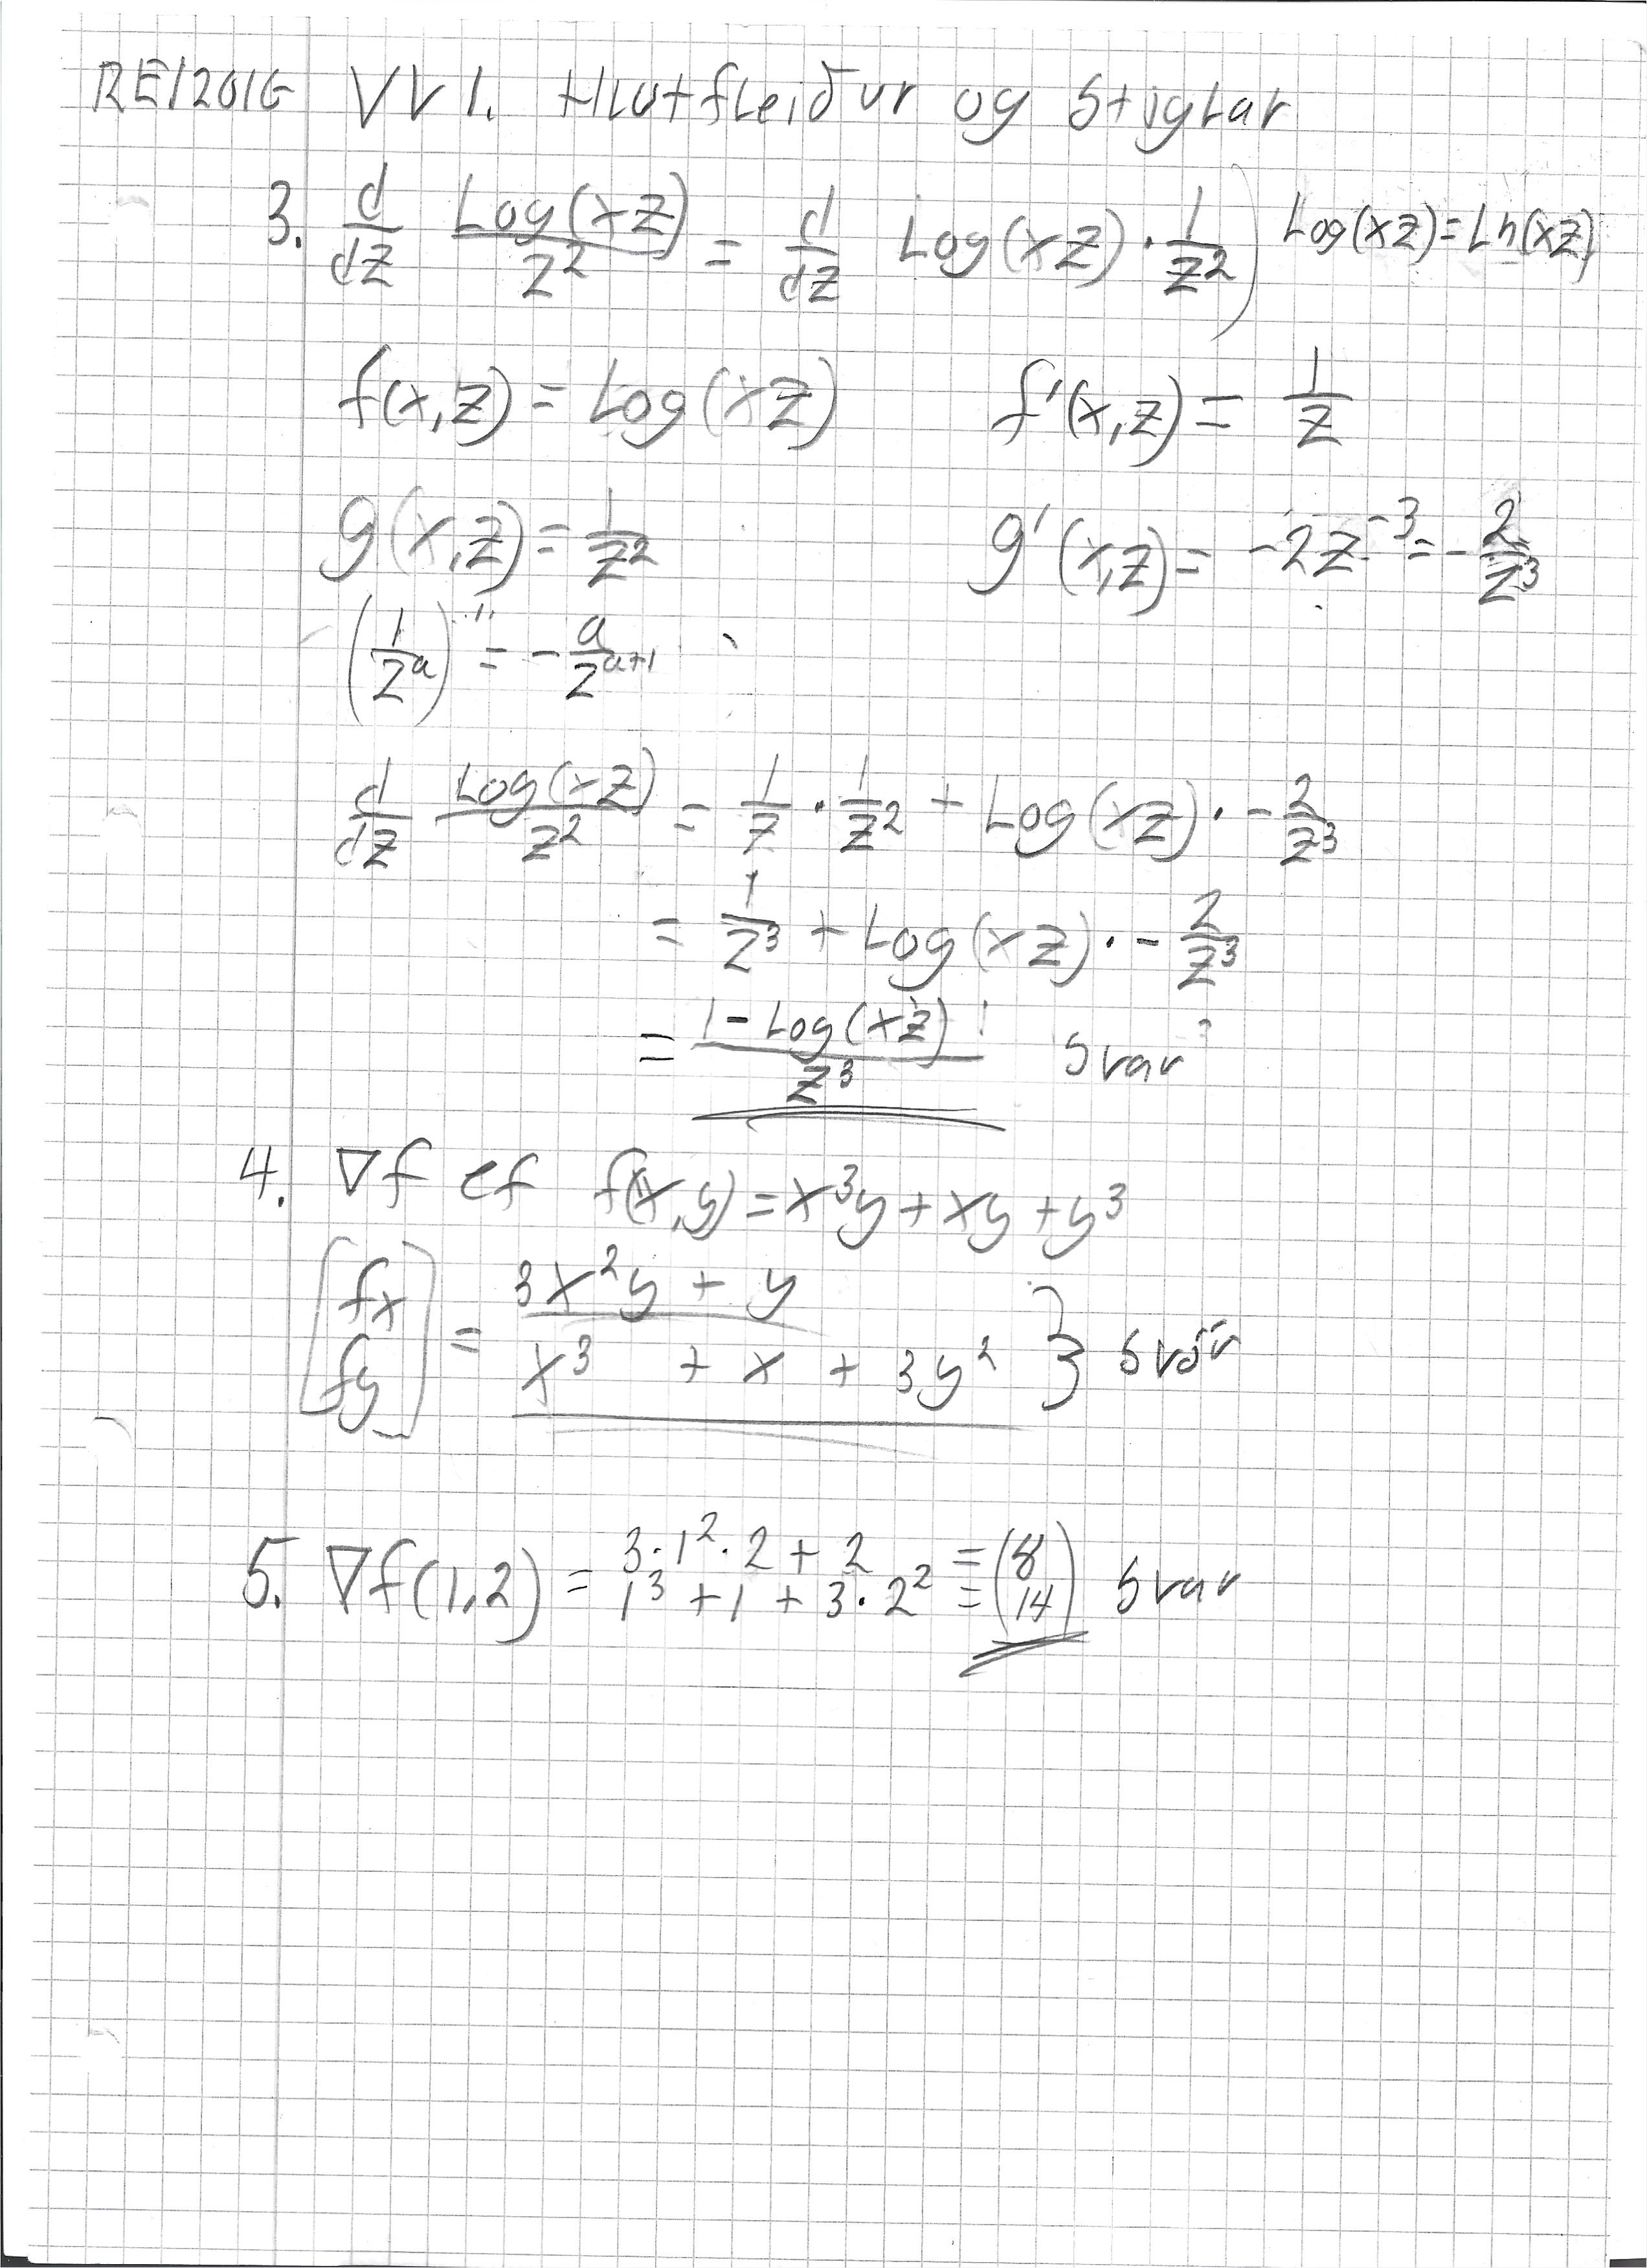 REI201G VV1. Hlutfleiður og Stiglar
3. d/dz Log(xz)/z² = d/dz Log(xz) · 1/z² ) Log(xz)=Ln(xz)
f(x,z) = Log(xz) f'(x,z) = 1/z
g(x,z) = 1/z² g'(x,z) = -2z⁻³ = -2/z³
(1/zᵃ)' = -a/zᵃ⁺¹
d/dz Log(xz)/z² = 1/z · 1/z² + Log(xz) · -2/z³
= 1/z³ + Log(xz) · -2/z³
= 1-Log(xz)/z³ Svar
4. ∇f ef f(x,y) = x³y + xy + y³
[fx] = 3x²y + y
[fy] x³ + x + 3y² } Svör
5. ∇f(1,2) = 3·1²·2 + 2 = (8
1³ + 1 + 3·2² = 14) Svar